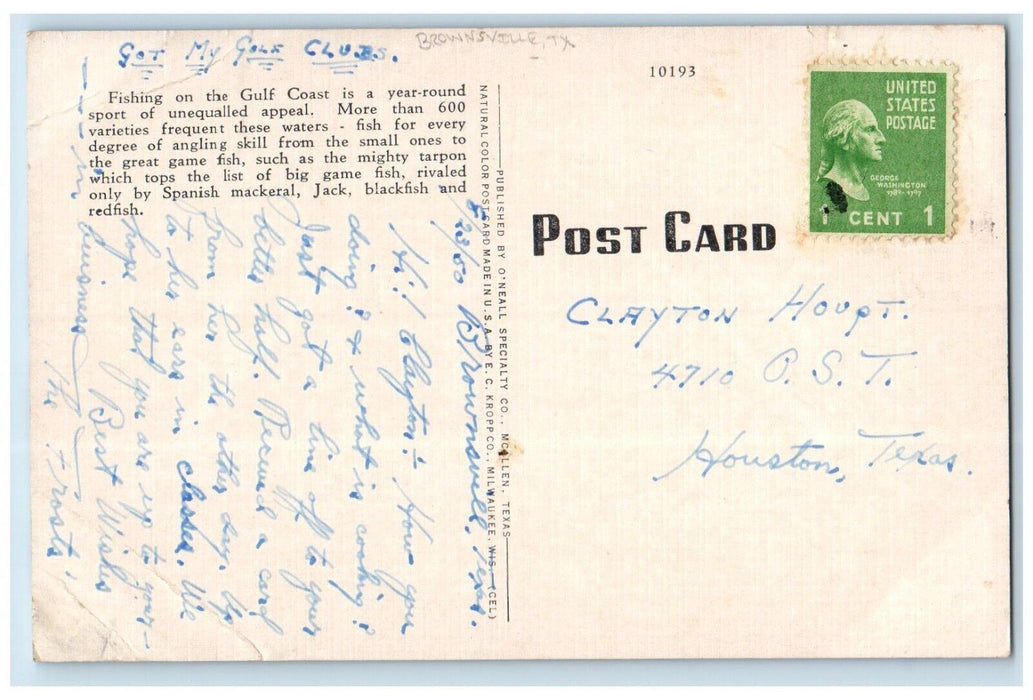 GOT MY GOLF CLUBS.
BROWNSVILLE, TX
Fishing on the Gulf Coast is a year-round
sport of unequalled appeal. More than 600
varieties frequent these waters - fish for every
degree of angling skill from the small ones to
the great game fish, such as the mighty tarpon
which tops the list of big game fish, rivaled
only by Spanish mackeral, Jack, blackfish and
redfish.
23/50 Brownsville, Texas.
Hi! Clayton: How you
doing? & what is cooking?
Just got a line off to your
better half. Received a card
from her the other day. Up
to her ears in classes. We
hope that you are up to your-
- - - in business
Best Wishes
The Frosts.
PUBLISHED BY O'NEALL SPECIALTY CO., MCALLEN, TEXAS
NATURAL COLOR POST CARD MADE IN U.S.A. BY E. C. KROPP CO., MILWAUKEE, WIS. (CEL)
10193
UNITED
STATES
POSTAGE
GEORGE
WASHINGTON
1789-1797
1 CENT 1
POST CARD
CLAYTON HOUPT.
4710 O. S. T.
Houston, Texas.